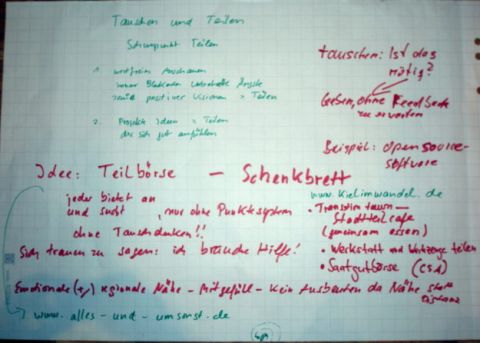 Tauschen und Teilen
Schwerpunkt Teilen
1. wertfreies Anschauen
innerer Blockaden unterhalb Ängste
positiver Visionen = Teilen
2. Projekte Ideen = Teilen
die sich gut anfühlen
tauschen: Ist das
nötig?
Geben, ohne Feedback
zu erwarten
Beispiel: opensource-
software
Idee: Teilbörse – Schenkbrett
jeder bietet an
und sucht, nur ohne Punktesystem
ohne Tauschdenken!!
Sich trauen zu sagen: ich brauche Hilfe!
www.kielimwandel.de
• Transition town –
Stadtteilcafe
(gemeinsam essen)
• Werkstatt und Werkzeuge teilen
• Saatgutbörse (CSA)
Emotionale (+/) regionale Nähe – Mitgefühl – kein Ausbeuten da Nähe statt
Distanz
www.alles-und-umsonst.de